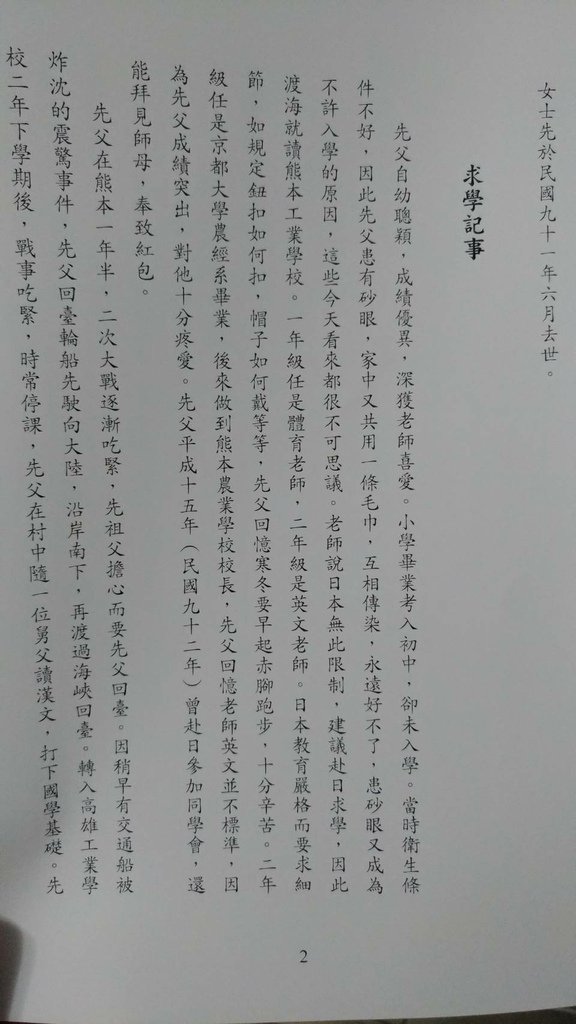 女士先於民國九十一年六月去世。
求學記事
先父自幼聰穎，成績優異，深獲老師喜愛。小學畢業考入初中，卻未入學。當時衛生條
件不好，因此先父患有砂眼，家中又共用一條毛巾，互相傳染，永遠好不了，患砂眼又成為
不許入學的原因，這些今天看來都很不可思議。老師說日本無此限制，建議赴日求學，因此
渡海就讀熊本工業學校。一年級任是體育老師，二年級是英文老師。日本教育嚴格而要求細
節，如規定鈕扣如何扣，帽子如何戴等等，先父回憶寒冬要早起赤腳跑步，十分辛苦。二年
級任是京都大學農經系畢業，後來做到熊本農業學校校長，先父回憶老師英文並不標準，因
為先父成績突出，對他十分疼愛。先父平成十五年（民國九十二年）曾赴日參加同學會，還
能拜見師母，奉致紅包。
先父在熊本一年半，二次大戰逐漸吃緊，先祖父擔心而要先父回臺。因稍早有交通船被
炸沈的震驚事件，先父回臺輪船先駛向大陸，沿岸南下，再渡過海峽回臺。轉入高雄工業學
校二年下學期後，戰事吃緊，時常停課，先父在村中隨一位舅父讀漢文，打下國學基礎。先
2